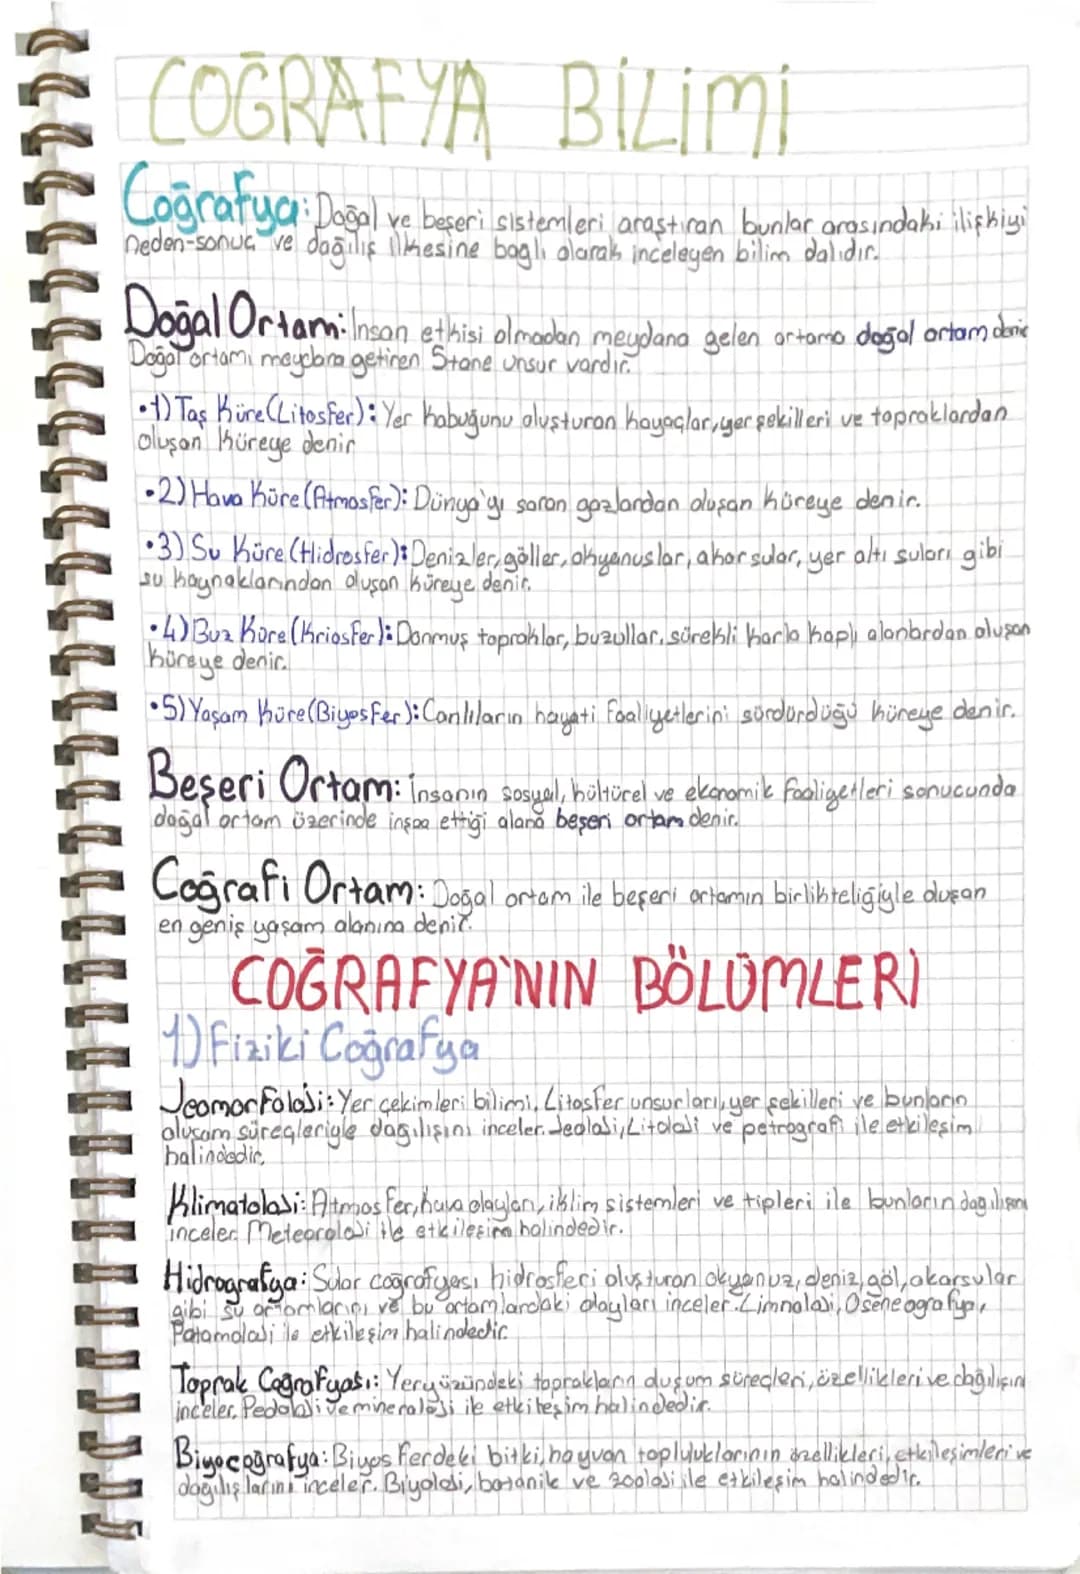 COĞRAFYA BİLİMİ
Coğrafya: Doğal ve beşeri sistemleri araştıran bunlar arasındaki ilişkiyi
neden-sonuç ve dağılış ilkesine bağlı olarak inceleyen bilim dalıdır.
Doğal Ortam: İnsan etkisi olmadan meydana gelen ortama doğal ortam denir
Doğal ortamı meydana getiren 5 tane unsur vardır.
•1) Taş Küre (Litosfer): Yer kabuğunu oluşturan kayaçlar, yer şekilleri ve topraklardan
oluşan küreye denir
•2) Hava Küre (Atmosfer): Dünya'yı saran gazlardan oluşan küreye denir.
•3) Su Küre (Hidrosfer): Denizler, göller, okyanuslar, akarsular, yer altı suları gibi
su kaynaklarından oluşan küreye denir.
•4) Buz Küre (Kriosfer): Donmuş topraklar, buzullar, sürekli karla kaplı alanlardan oluşan
küreye denir.
•5) Yaşam Küre (Biyosfer): Canlıların hayati faaliyetlerini sürdürdüğü küreye denir.
Beşeri Ortam: İnsanın sosyal, kültürel ve ekonomik faaliyetleri sonucunda
doğal ortam üzerinde inşaa ettiği alana beşeri ortam denir.
Coğrafi Ortam: Doğal ortam ile beşeri ortamın birlikteliğiyle oluşan
en geniş yaşam alanına denir.
COĞRAFYA'NIN BÖLÜMLERİ
1) Fiziki Coğrafya
Jeomorfoloji: Yer çekimleri bilimi, Litosfer unsurları, yer şekilleri ve bunların
oluşum süreçleriyle dağılışını inceler. Jeoloji, Litoloji ve petrografi ile etkileşim
halindedir.
Klimatoloji: Atmosfer, hava olayları, iklim sistemleri ve tipleri ile bunların dağılışını
inceler. Meteoroloji ile etkileşim halindedir.
Hidrografya: Sular coğrafyası hidrosferi oluşturan okyanuz, deniz, göl, akarsular
gibi su ortamlarını ve bu ortamlardaki olayları inceler. Limnoloji, Oseneografya,
Patamoloji ile etkileşim halindedir
Toprak Coğrafyası: Yeryüzündeki toprakların oluşum süreçleri, özellikleri ve dağılışını
inceler. Pedoloji ve mineraloji ile etkileşim halindedir.
Biyocoğrafya: Biyosferdeki bitki, hayvan topluluklarının özellikleri, etkileşimleri ve
dağılışlarını inceler. Biyoloji, botanik ve zooloji ile etkileşim halindedir.